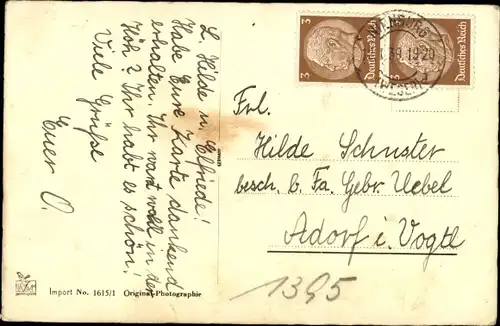 L. Hilde u. Elfriede!
Habe Eure Karte dankend
erhalten. Ihr wart wohl in der
Höh? Ihr habt es schön!
Viele Grüße
Euer O.
3 Deutsches Reich
3 Deutsches Reich
39.1920
(WESER)
Frl.
Hilde Schuster
besch. b. Fa. Gebr. Uebel
Adorf i. Vogtl
1395
Import No. 1615/1 Original-Photographie